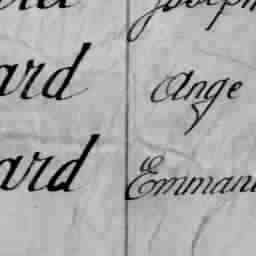 Joseph
ard Ange
ard Emmanu